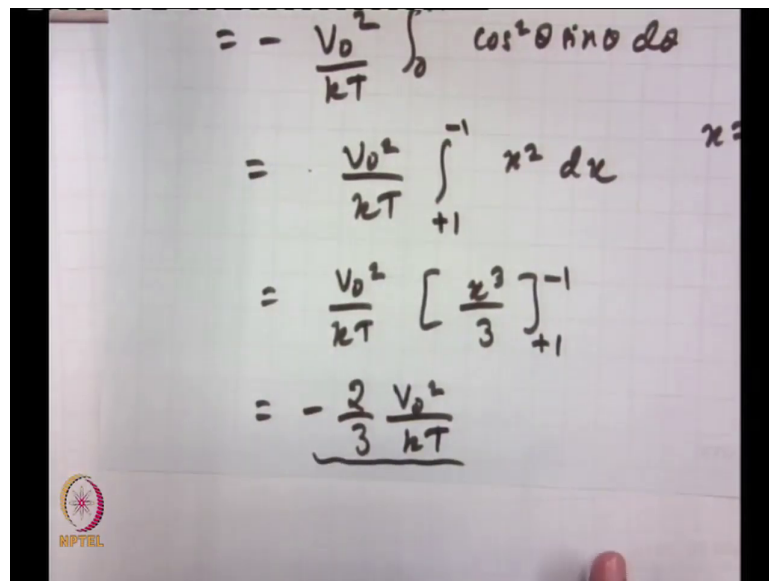 = - V₀²/kT ∫₀ cos²θ sinθ dθ
= V₀²/kT ∫₊₁⁻¹ x² dx x=
= V₀²/kT [x³/3]₊₁⁻¹
= - 2/3 V₀²/kT
NPTEL